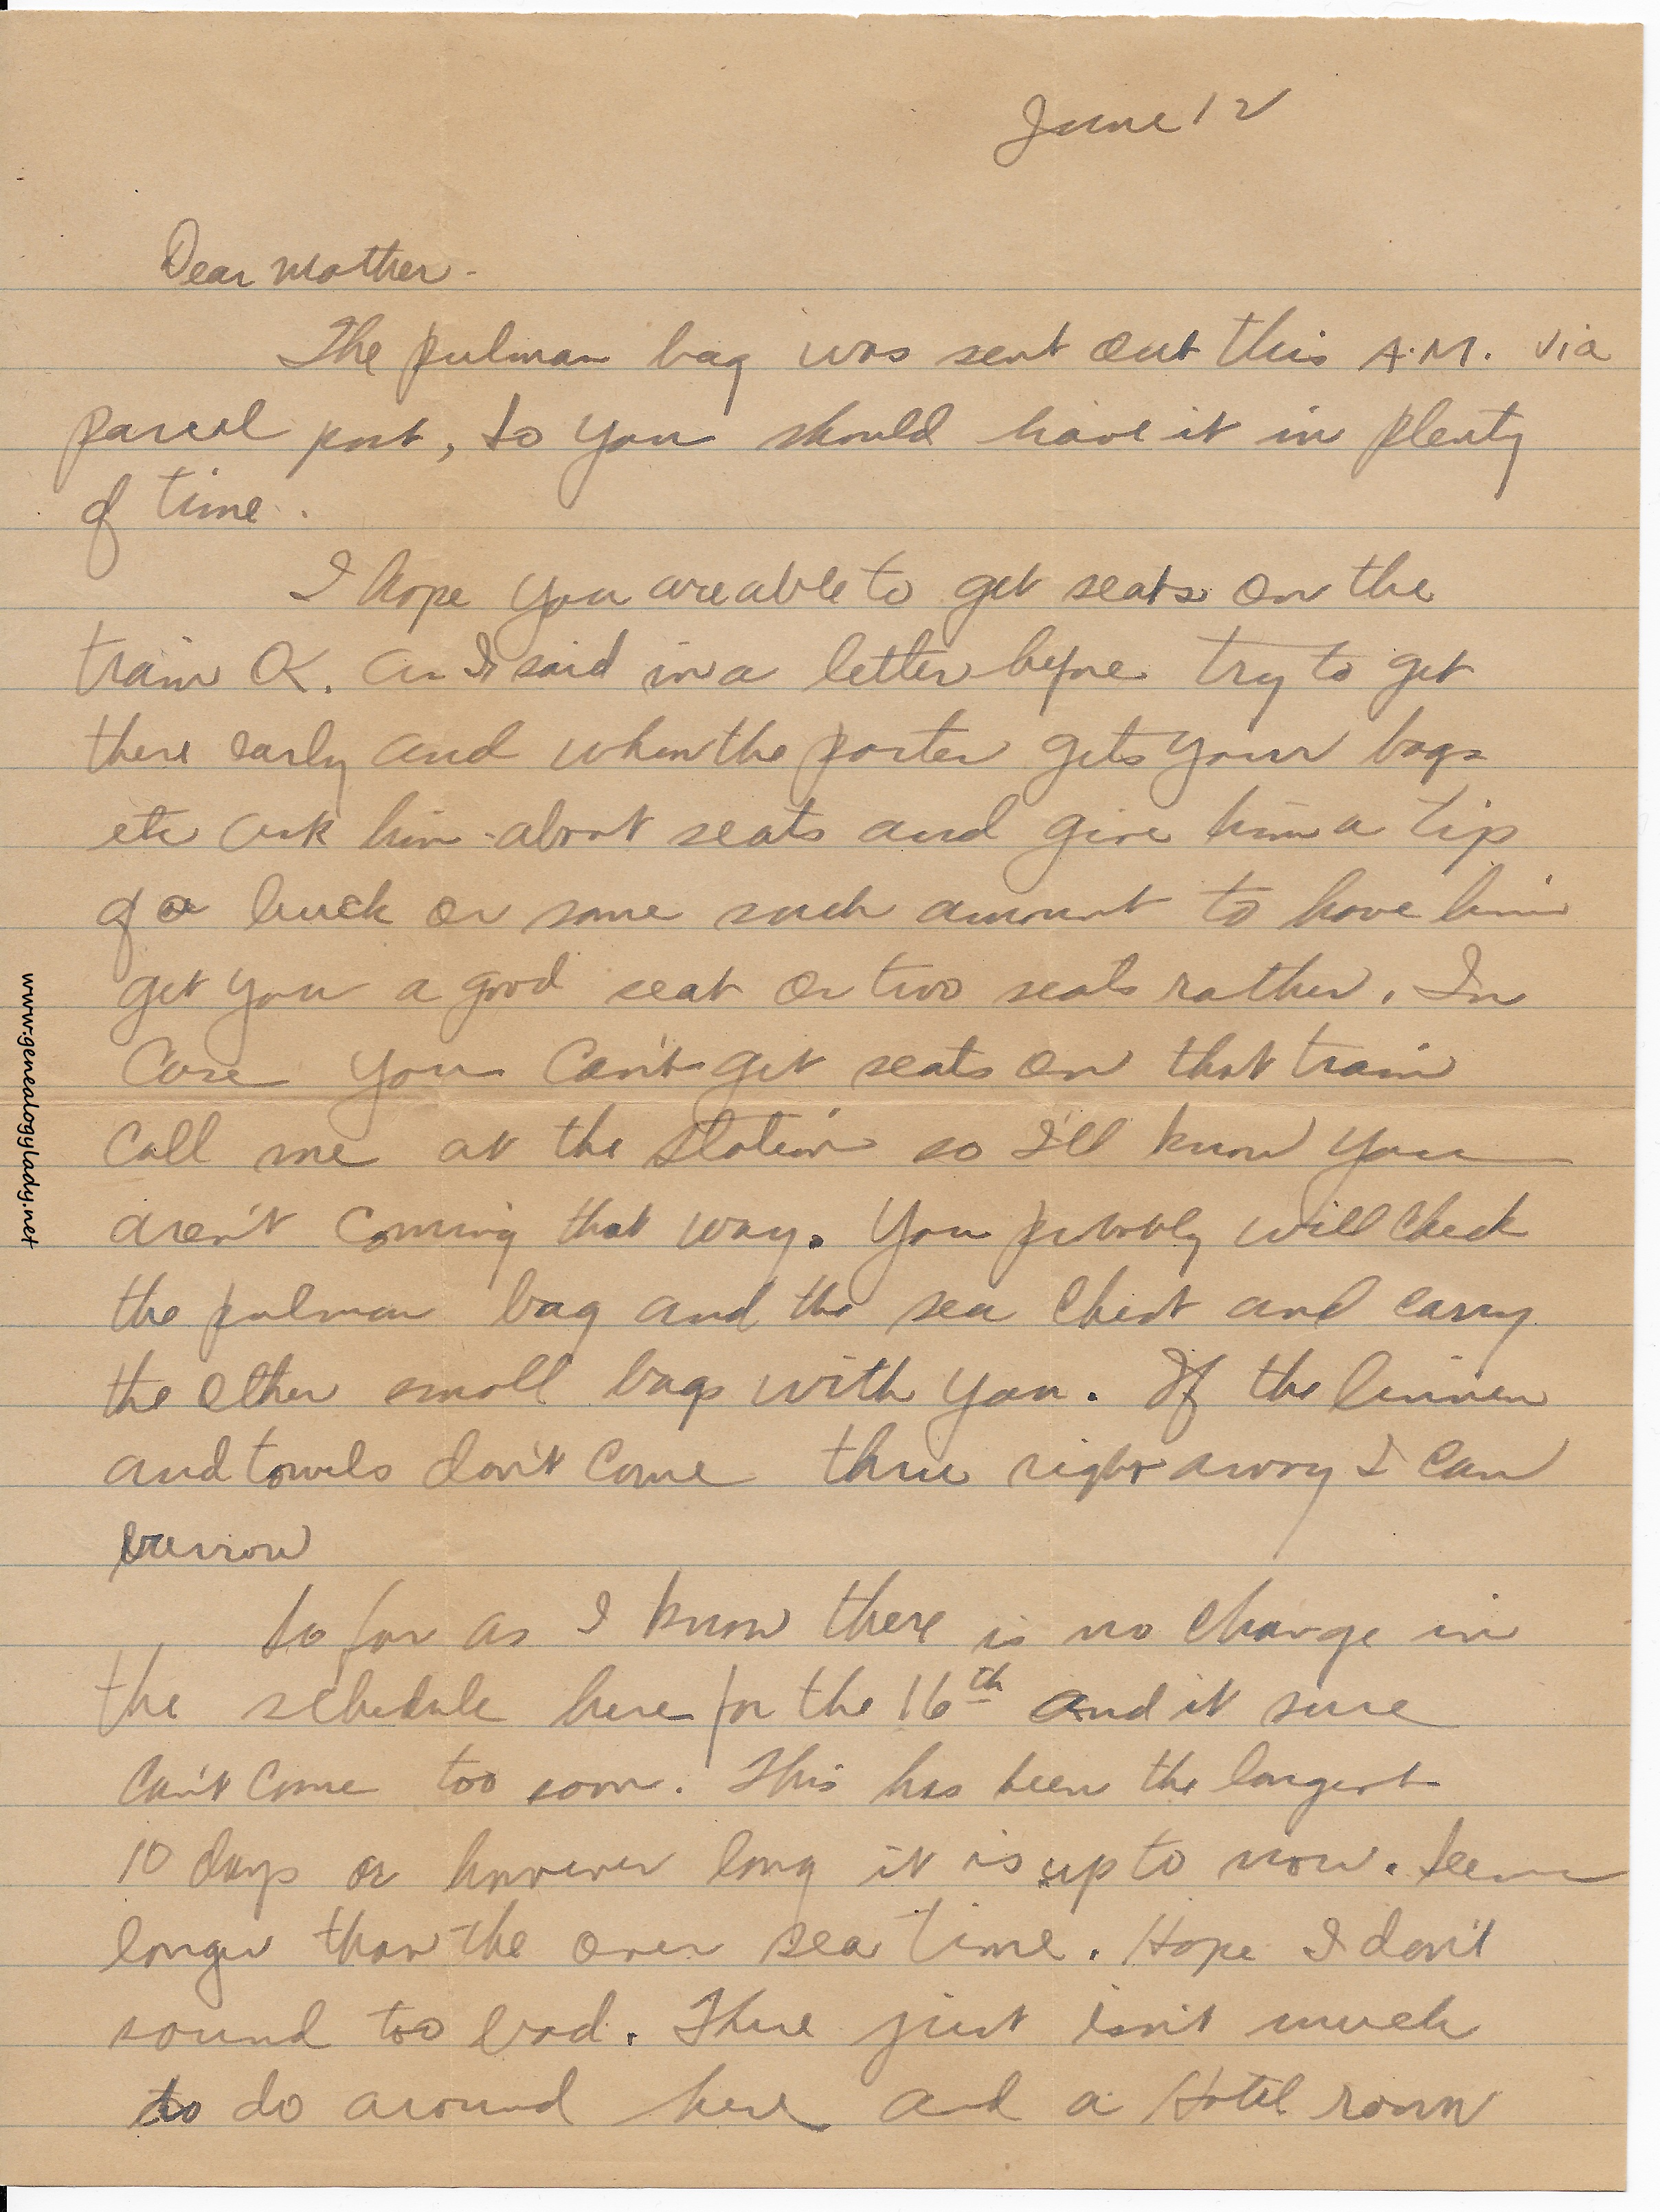 June 12
Dear Mother-
The pulman bag was sent out this A.M. via
parcel post, so you should have it in plenty
of time.
I hope you are able to get seats on the
train OK. As I said in a letter before try to get
there early and when the porter gets your bags
etc ask him about seats and give him a tip
of a buck or some such amount to have him
get you a good seat or two seats rather. In
case you can't get seats on that train
call me at the station so I'll know you
aren't coming that way. You probably will check
the pulman bag and the sea chest and carry
the other small bags with you. If the linnen
and towels don't come thru right away I can
borrow
So far as I know there is no change in
the schedule here for the 16th and it sure
can't come too soon. This has been the longest
10 days or however long it is up to now. Seems
longer than the over sea time. Hope I don't
sound too bad. There just isn't much
to do around here and a Hotel room
www.genealogylady.net